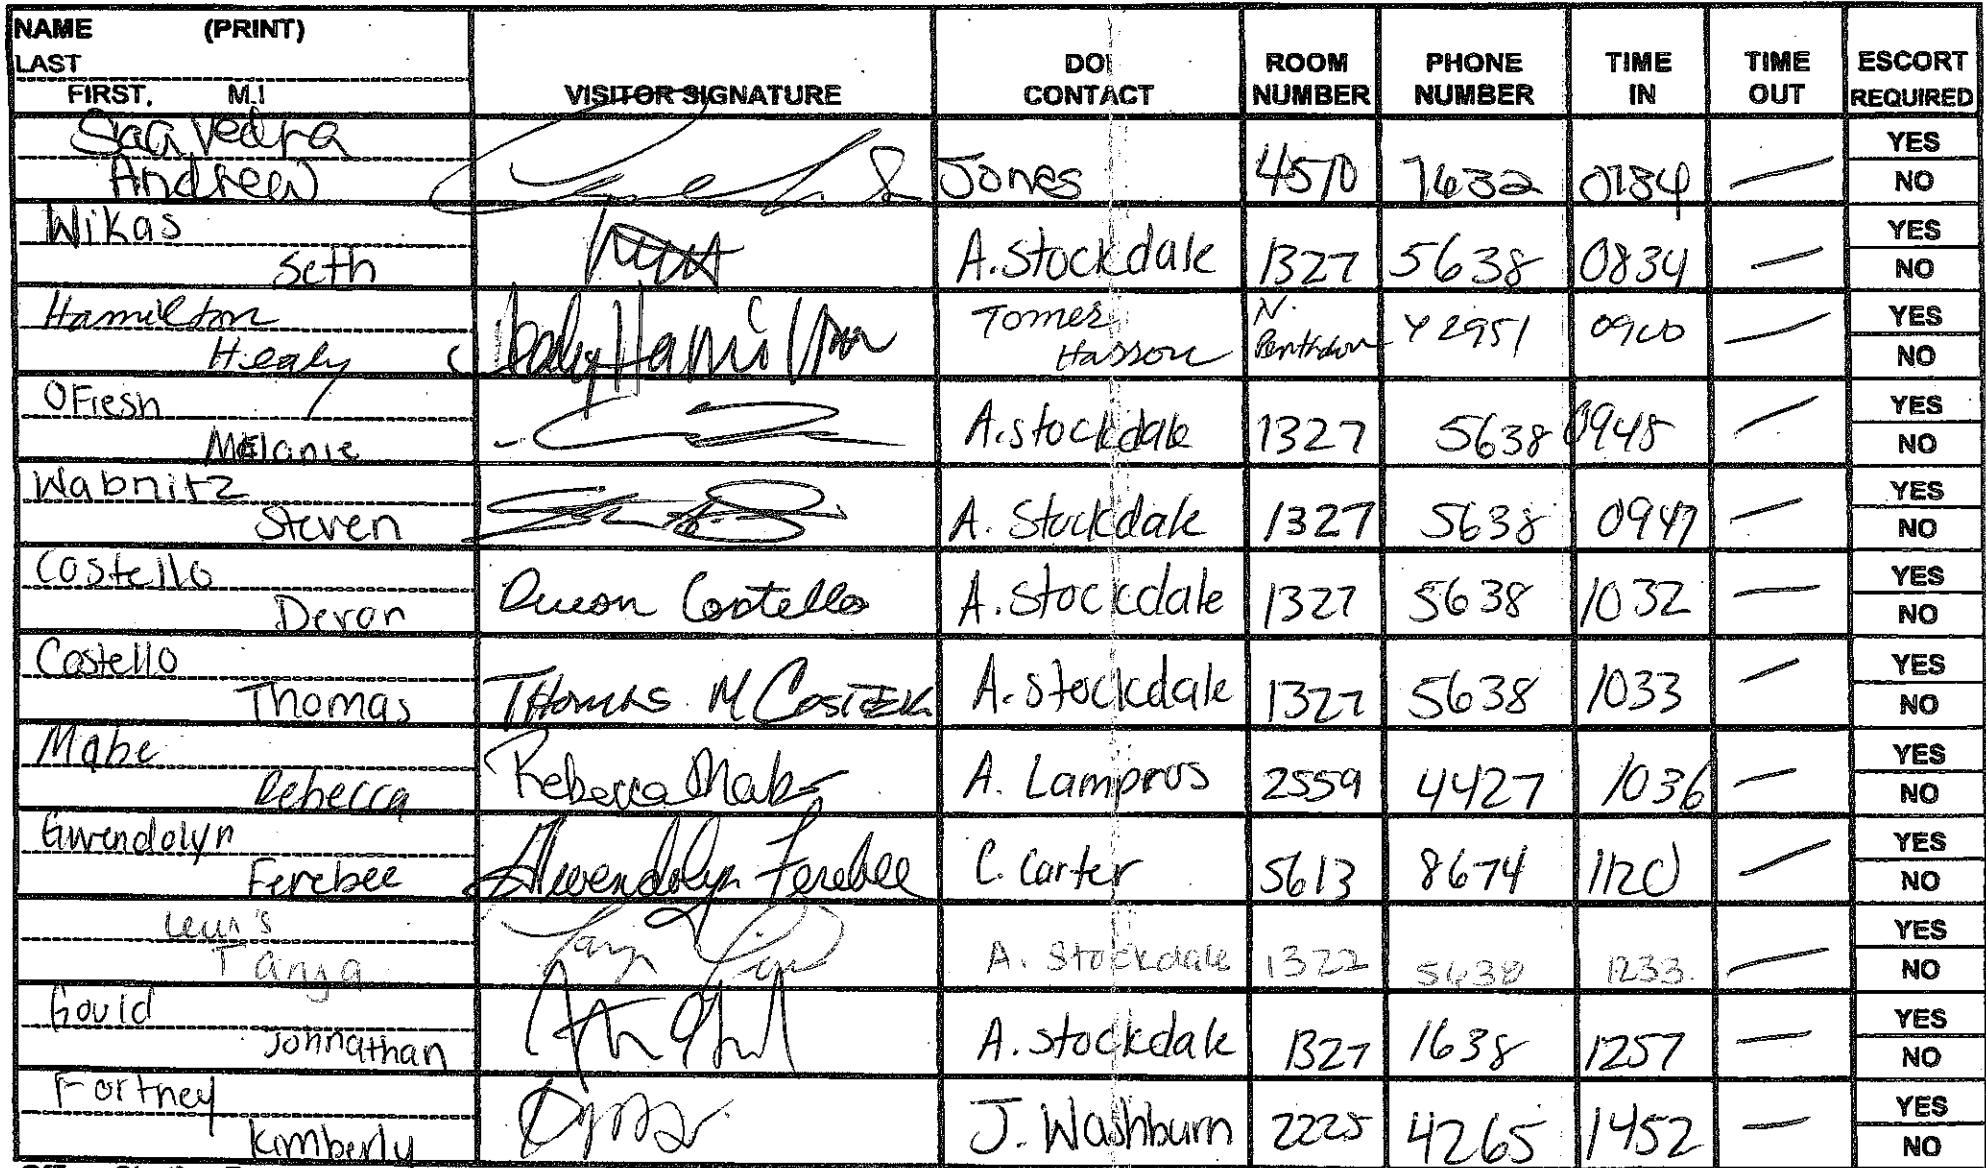 NAME (PRINT)
LAST
FIRST, M.I
VISITOR SIGNATURE
DOI
CONTACT
ROOM
NUMBER
PHONE
NUMBER
TIME
IN
TIME
OUT
ESCORT
REQUIRED
Saavedra
Andrew
Jones 4570 7632 0734 —
YES
NO
Wikas
Seth
A. Stockdale 1327 5638 0834 —
YES
NO
Hamilton
Healy
Healy Hamilton
Tomer
Hasson
N.
Y 2951 0900 —
YES
NO
OFresh
Melanie
A. stockdale 1327 5638 0948 —
YES
NO
Wabnitz
Steven
A. Stockdale 1327 5638 0947 —
YES
NO
Costello
Devon
Devon Costello A. Stockdale 1327 5638 1032 —
YES
NO
Costello
Thomas
Thomas M Costello A. stockdale 1327 5638 1033 —
YES
NO
Mabe
Rebecca
Rebecca Mabe A. Lampros 2559 4427 1036 —
YES
NO
Gwendolyn
Ferebee
Gwendolyn Ferebee C. Carter 5613 8674 1120 —
YES
NO
Lewis
Tanya
A. Stockdale 1322 5638 1233 —
YES
NO
Gould
Johnathan
A. stockdale 1327 1638 1257 —
YES
NO
Fortney
Kimberly
J. Washburn 2225 4265 1452 —
YES
NO